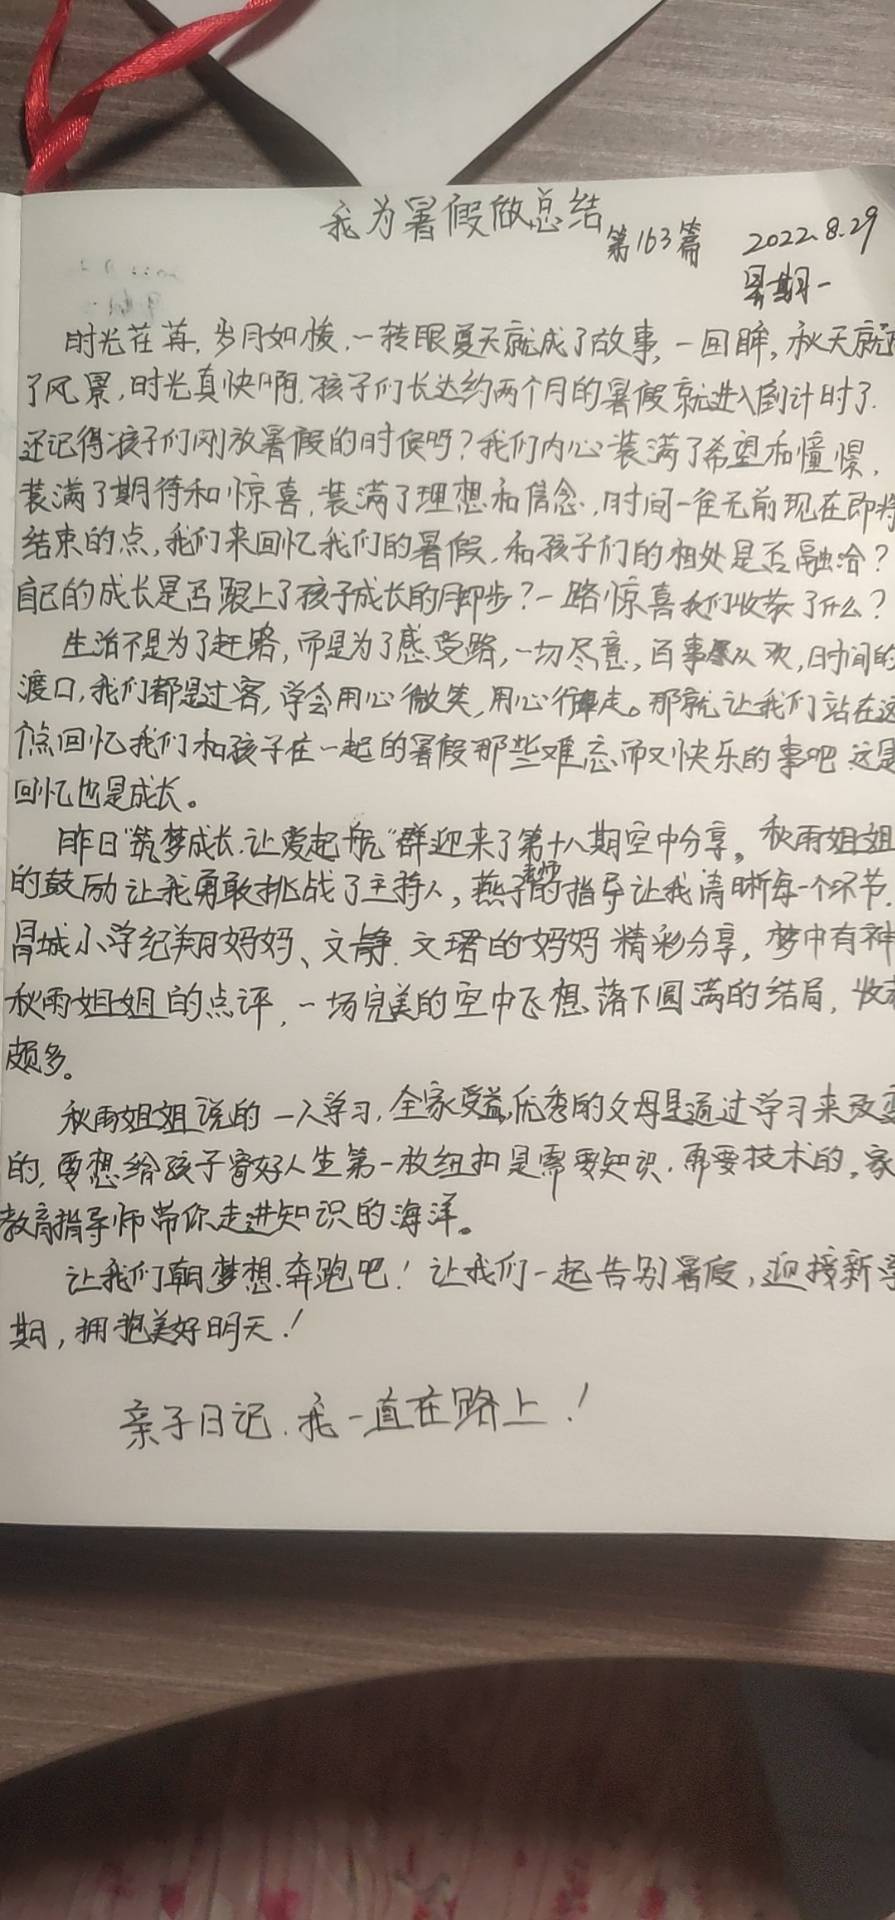 我为暑假做总结
第163篇
2022.8.29
星期一
时光荏苒,岁月如梭,一转眼夏天就成了故事,一回眸,秋天就
了风景,时光真快啊,孩子们长达约两个月的暑假就进入倒计时了.
还记得孩子们刚放暑假的时候吗?我们内心装满了希望和憧憬,
装满了期待和惊喜,装满了理想和信念,时间一往无前现在即将
结束的点,我们来回忆我们的暑假,和孩子们的相处是否融洽?
自己的成长是否跟上了孩子成长的脚步?一路惊喜我们收获了什么?
生活不是为了赶路,而是为了感受路,一切尽意,百事从欢,时间的
渡口,我们都是过客,学会用心微笑,用心行走。那就让我们站在这
个点回忆我们和孩子在一起的暑假那些难忘而又快乐的事吧.这是
回忆也是成长。
昨日“筑梦成长.让爱起航”群迎来了第十八期空中分享。秋雨姐姐
的鼓励让我勇敢挑战了主持人,燕子老师的指导让我清晰每一个环节.
昌城小学纪翔妈妈、文静.文珺的妈妈精彩分享,梦中有神
秋雨姐姐的点评,一场完美的空中飞想落下圆满的结局,收获
颇多。
秋雨姐姐说的一人学习,全家受益,优秀的父母是通过学习来改变
的,要想给孩子寄好人生第一枚纽扣是需要知识.需要技术的,家
教育指导师带你走进知识的海洋。
让我们朝梦想奔跑吧!让我们一起告别暑假,迎接新学
期,拥抱美好明天!
亲子日记.我一直在路上!